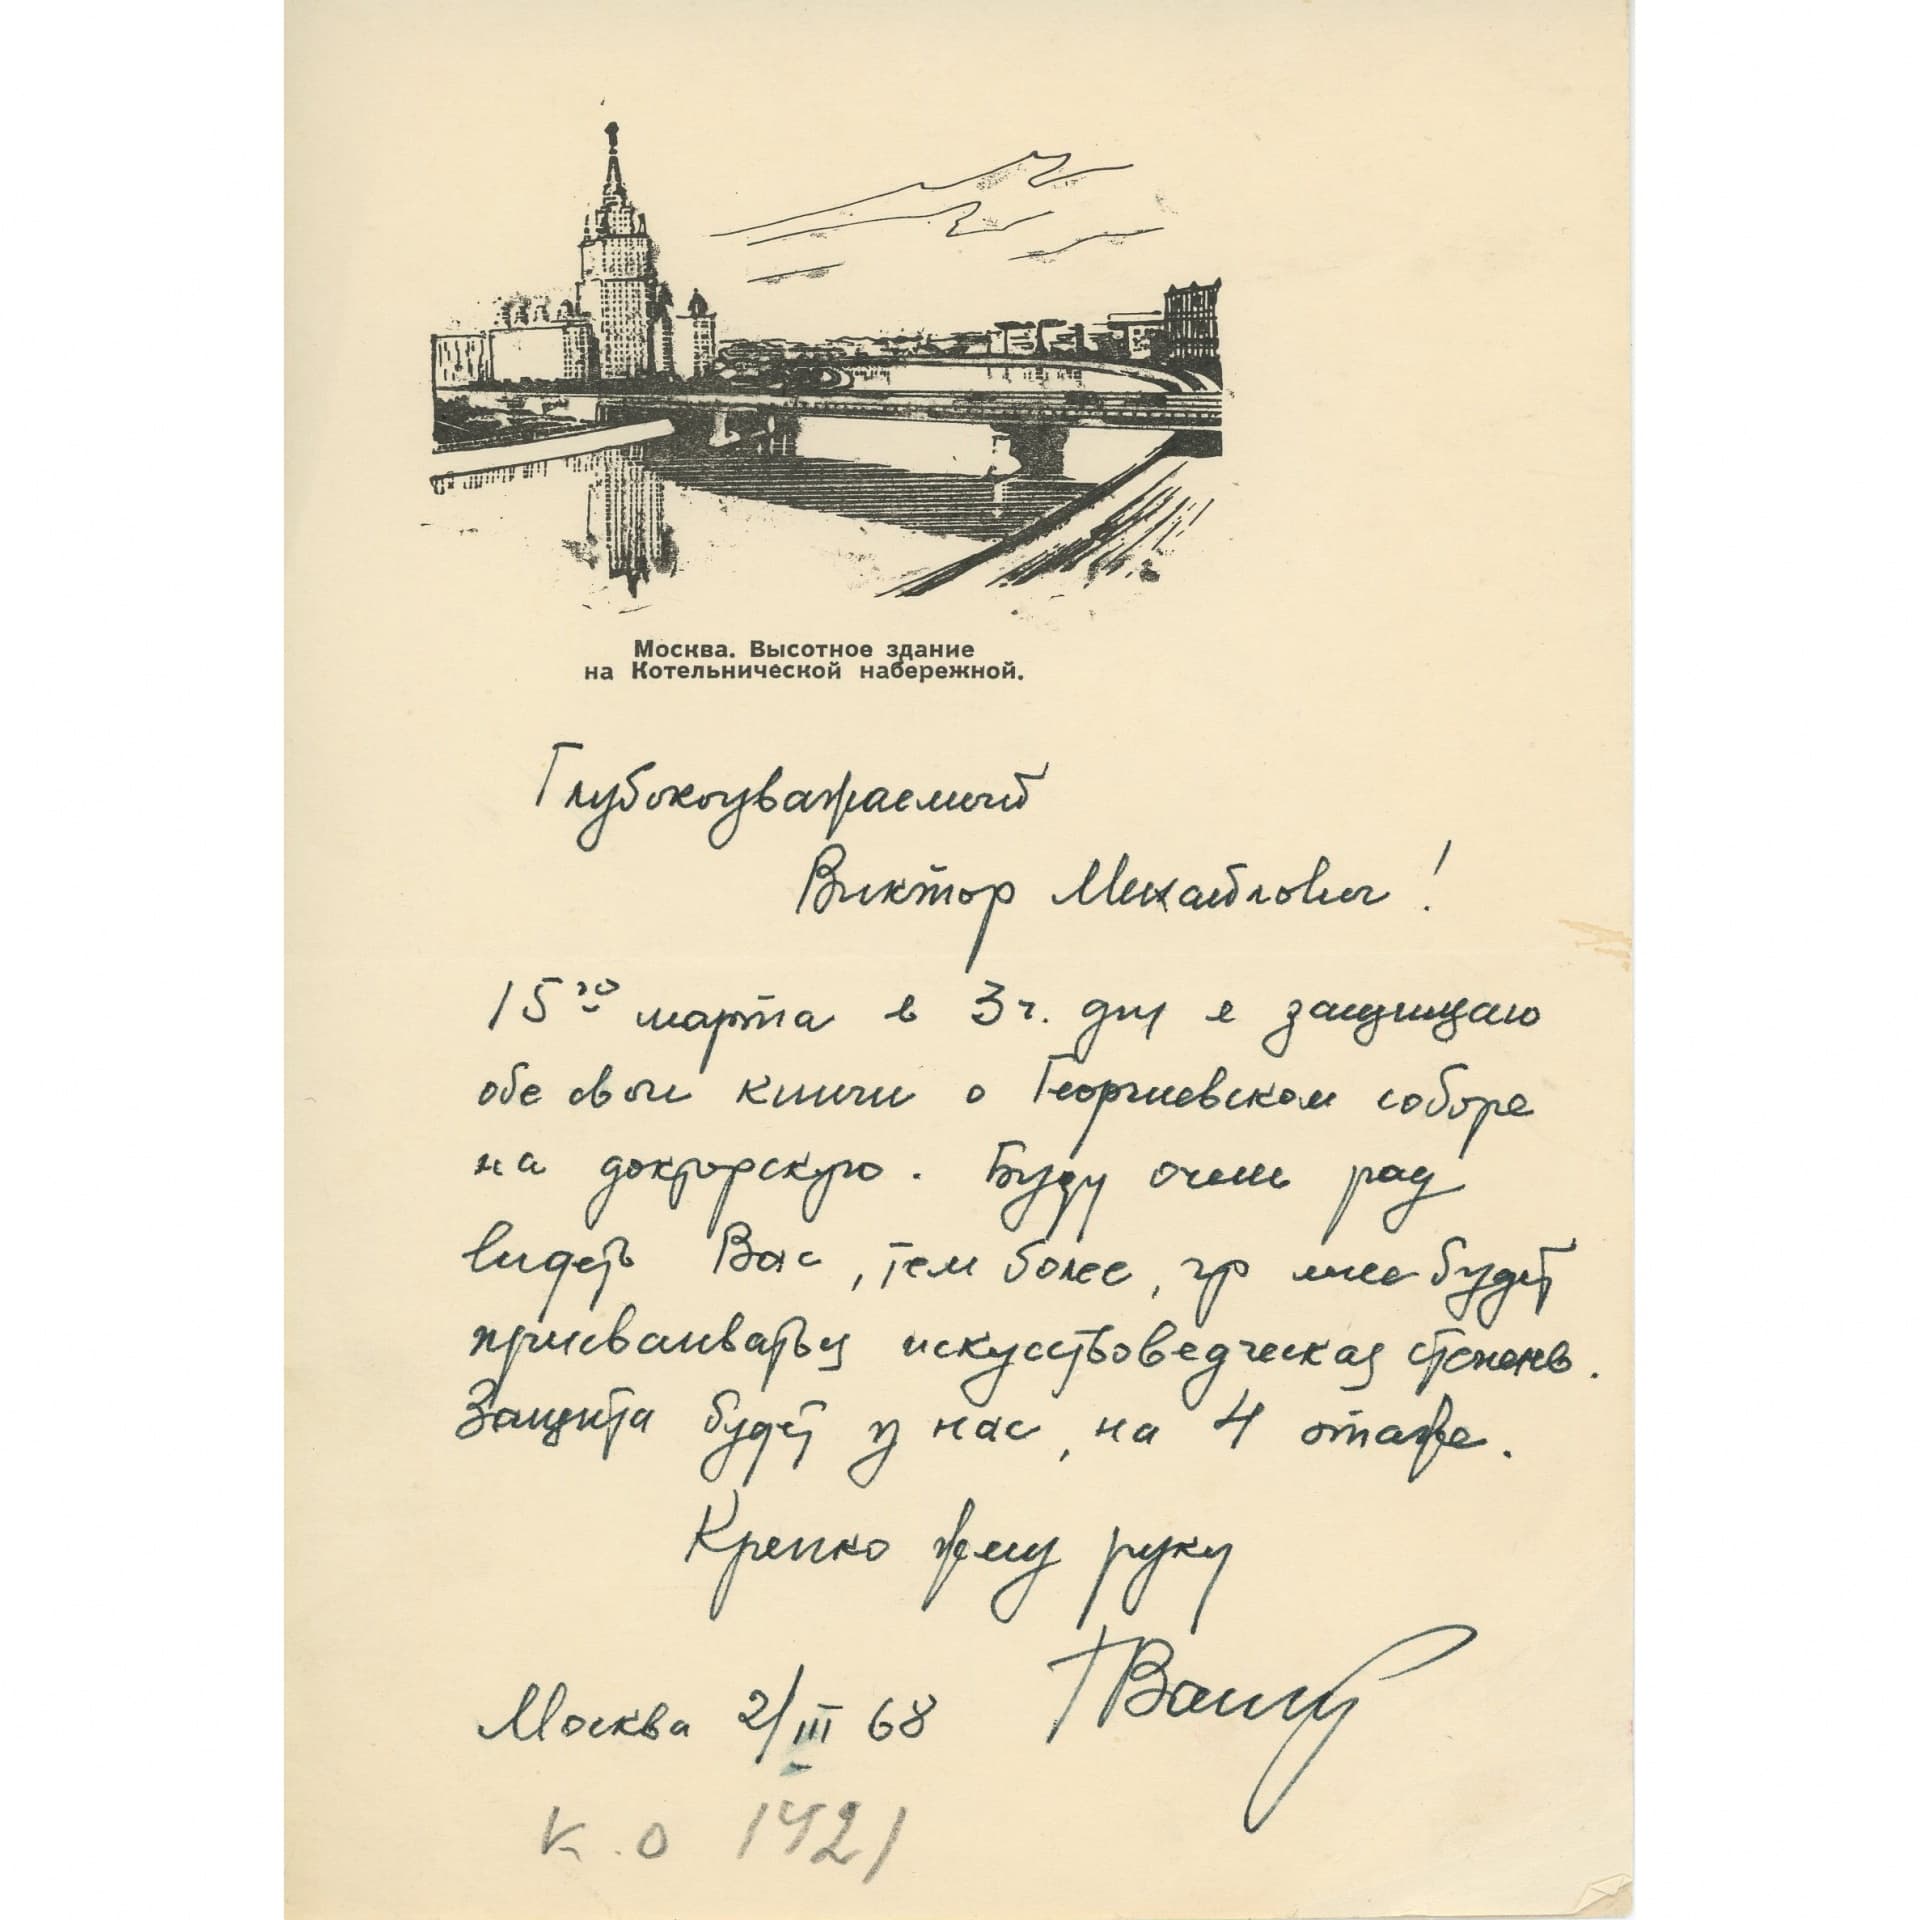 Москва. Высотное здание
на Котельнической набережной.
Глубокоуважаемый
Виктор Михайлович!
15го марта в 3 ч. дня я защищаю
обе свои книги о Георгиевском соборе
на докторскую. Буду очень рад
видеть Вас, тем более, что мне будет
присваиваться искусствоведческая степень.
Защита будет у нас, на 4 этаже.
Крепко жму руку
ГВагнер
Москва 2/III 68
К.О 1421